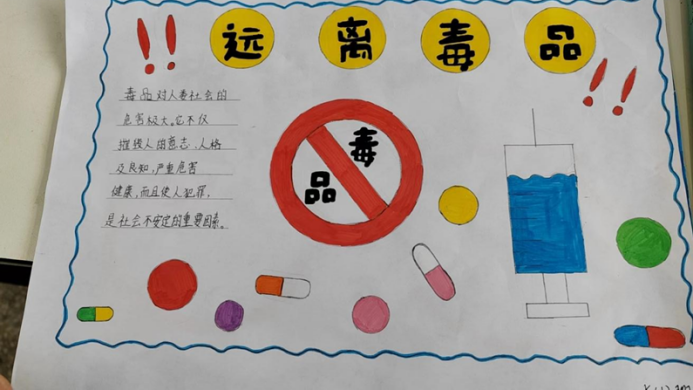 !! 远离毒品 !!
毒品对人类社会的
危害极大。它不仅
摧残人的意志、人格
及良知，严重危害
健康，而且使人犯罪，
是社会不安定的重要因素。
毒
品